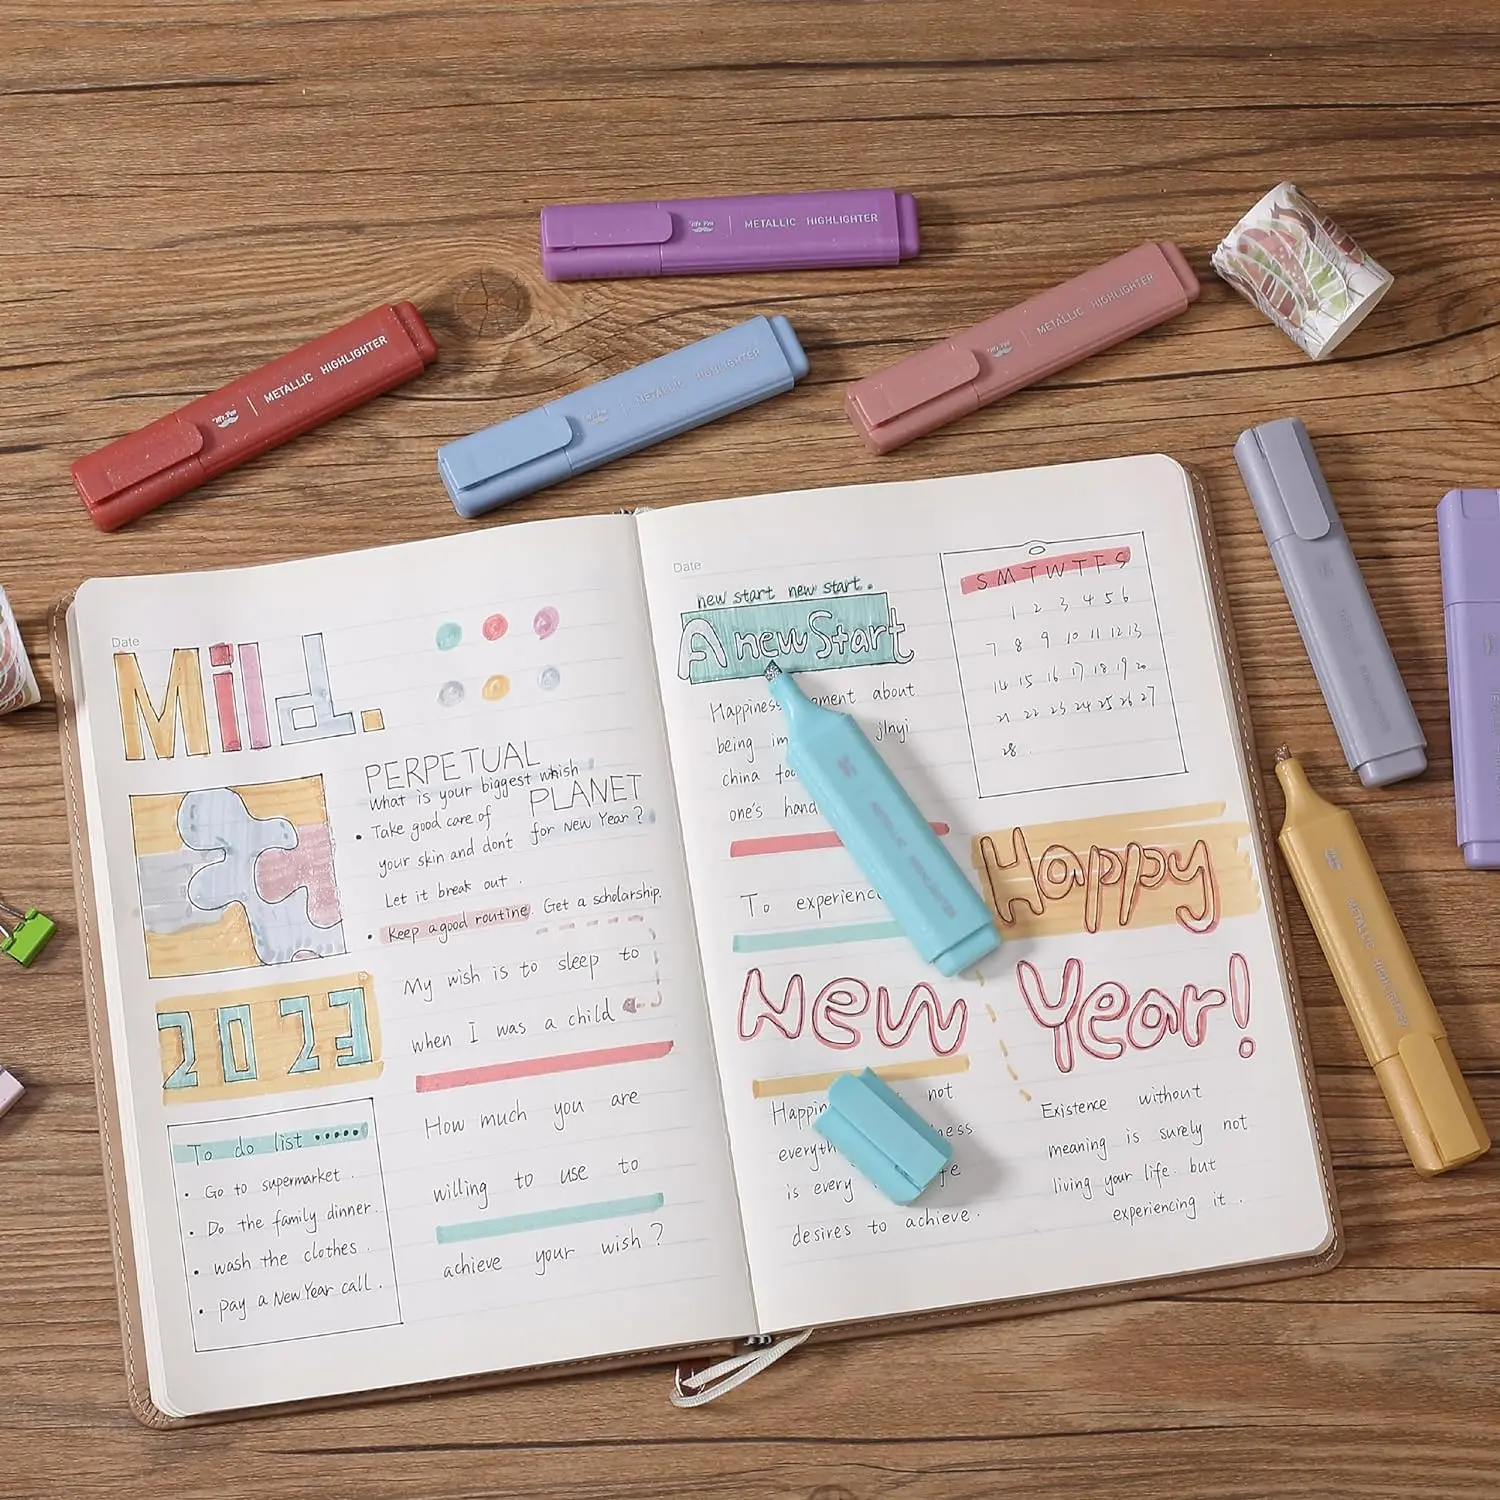 Mr. Pen METALLIC HIGHLIGHTER
Mr. Pen METALLIC HIGHLIGHTER
Mr. Pen METALLIC HIGHLIGHTER
Mr. Pen METALLIC HIGHLIGHTER
Date
Mild.
PERPETUAL
what is your biggest whish
PLANET
• Take good care of
for New Year?
your skin and dont'
Let it break out.
• Keep a good routine. Get a scholarship.
My wish is to sleep to
when I was a child
2023
To do list •••••
• Go to supermarket.
• Do the family dinner.
• wash the clothes.
• pay a New Year call.
How much you are
willing to use to
achieve your wish?
Date
new start new start.
A new Start
about
being
china
one's
To
S M T W T F S
1 2 3 4 5 6
7 8 9 10 11 12 13
14 15 16 17 18 19 20
21 22 23 24 25 26 27
28.
Happy
New Year!
not
is every
desires to achieve.
Existence without
meaning is surely not
living your life. but
experiencing it.
METALLIC HIGHLIGHTER